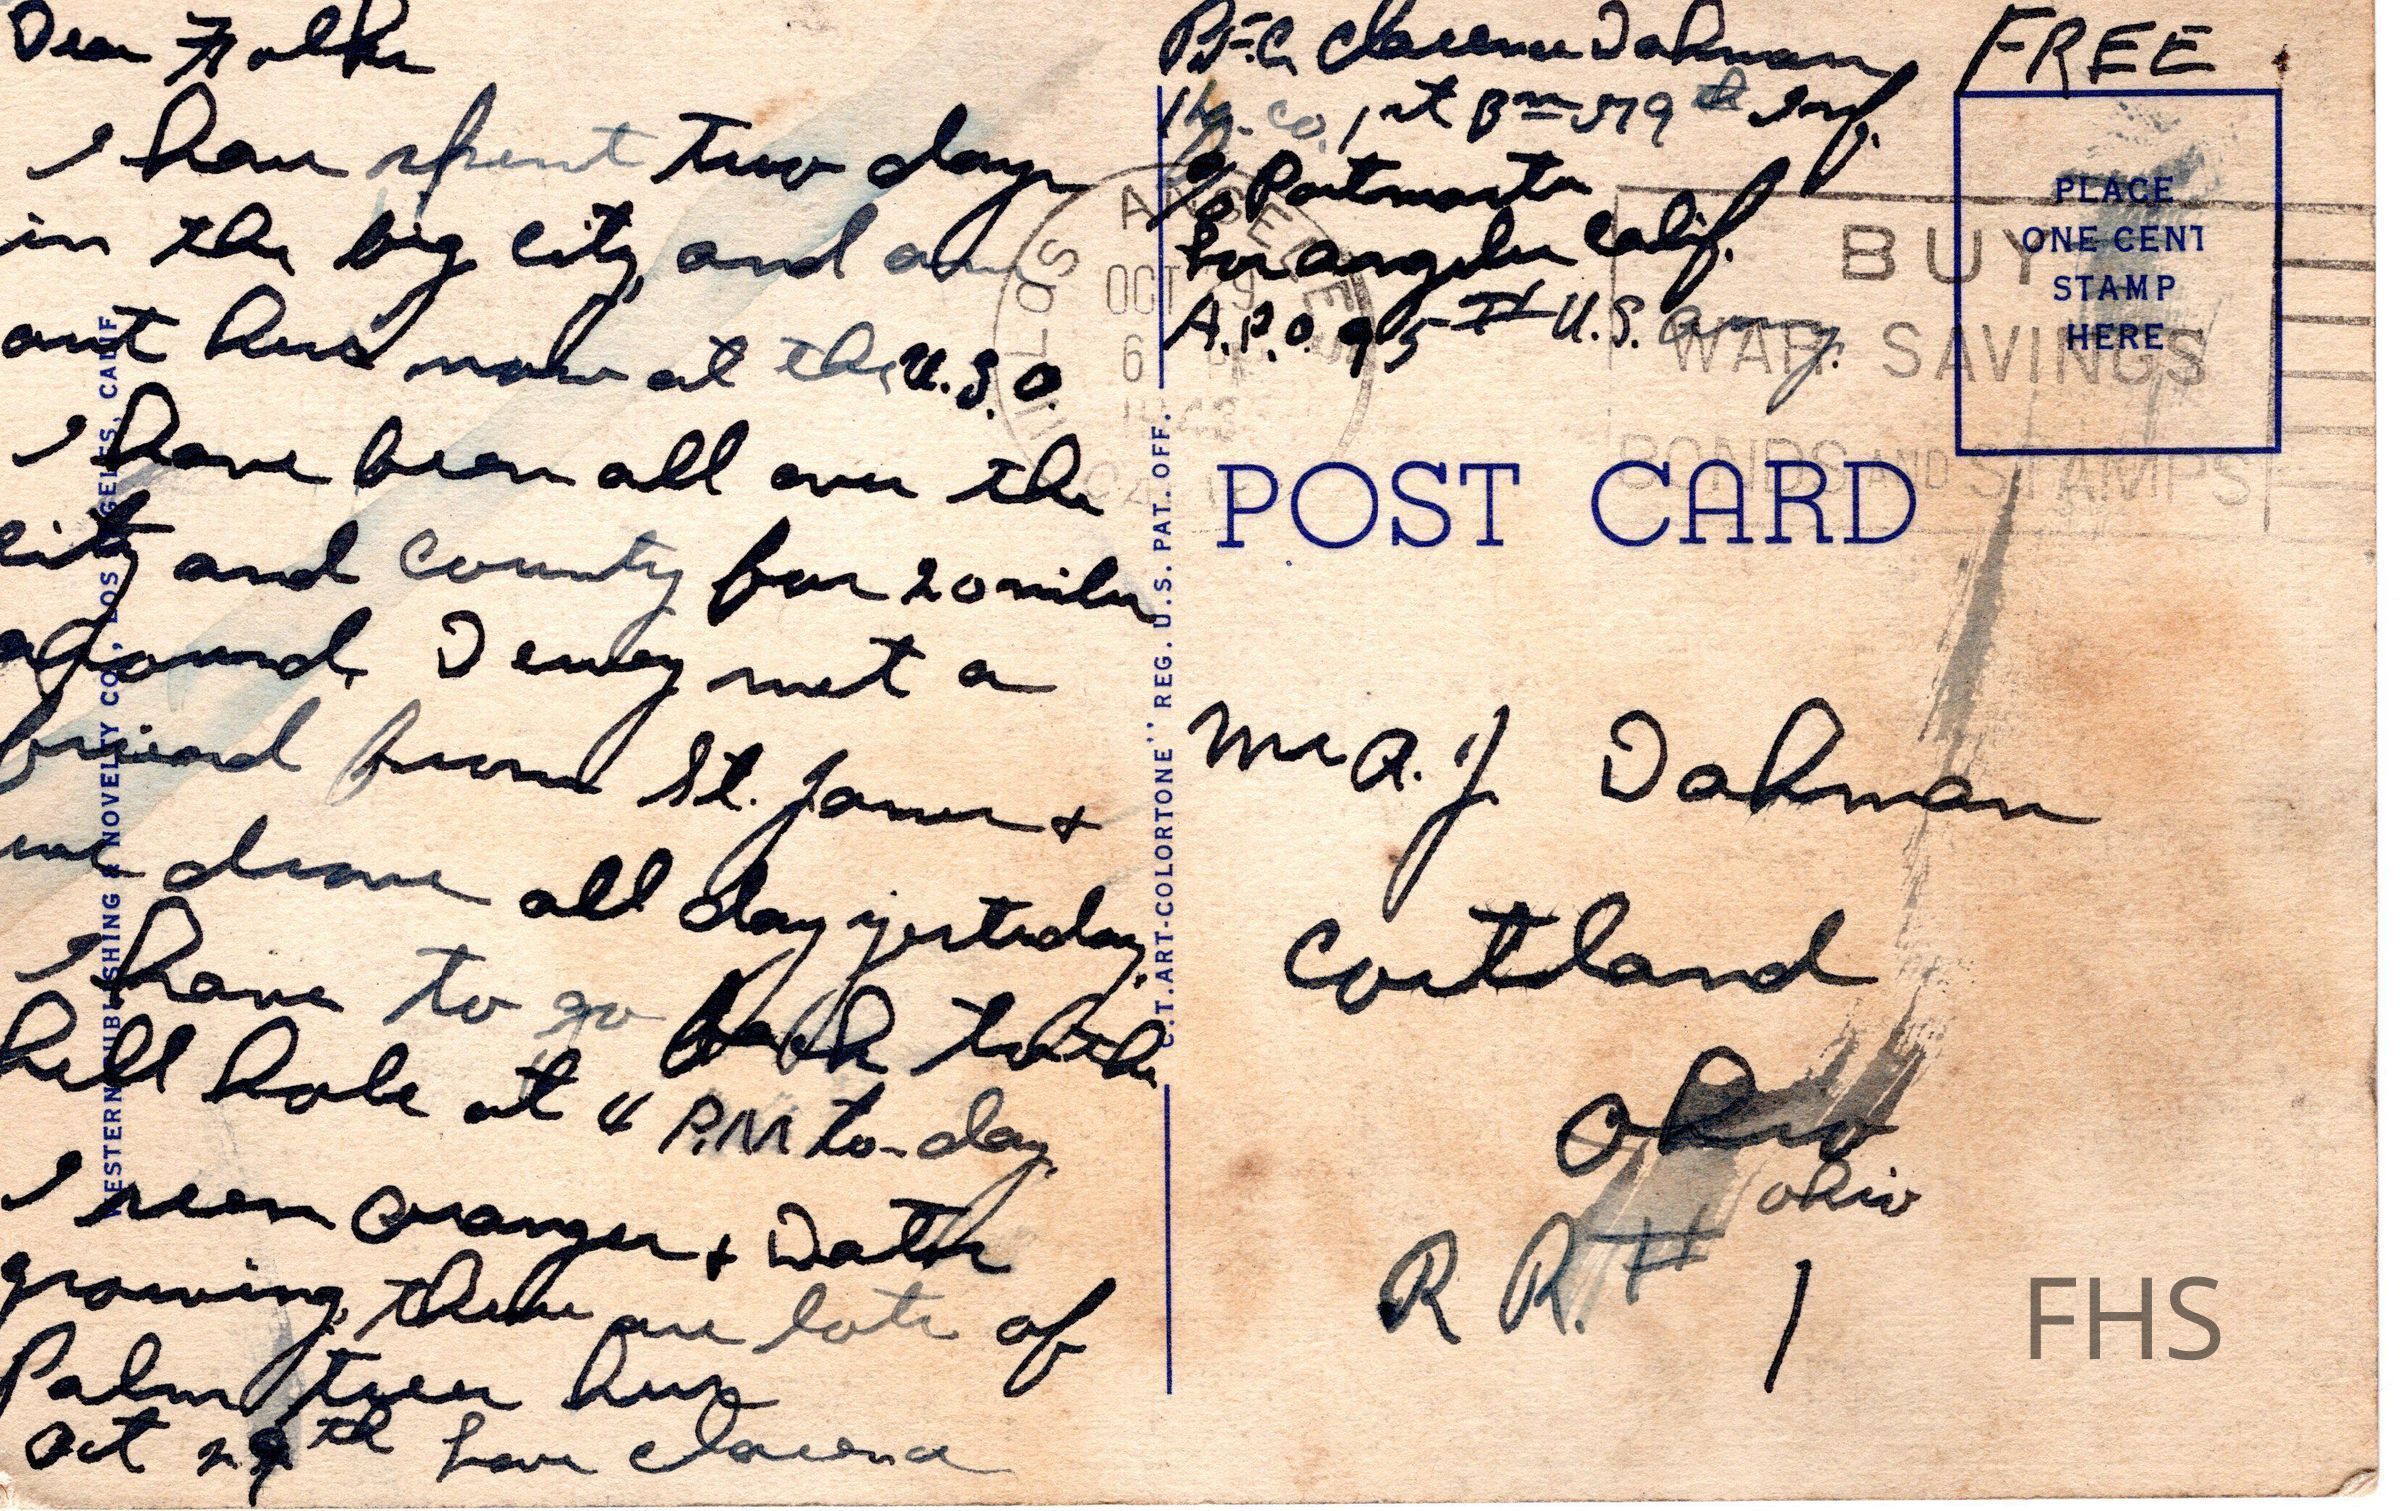 Dear Folks
I have spent two days
in the big city, and am
out here now at the U.S.O.
I have been all over the
city and county for 20 miles
around. Dewey met a
friend from St. James +
we drove all day yesterday.
I have to go back to the
hell hole at 4 P.M to-day
I seen oranges + Dates
growing, there are lots of
Palm trees here
Oct 29th Love Clarence
WESTERN PUBLISHING & NOVELTY CO., LOS ANGELES, CALIF
C.T. ART-COLORTONE" REG. U.S. PAT. OFF.
P.F.C. Clarence Dahman
Hq. Co. 1st Bn 379th Inf.
c/o Postmaster
Los Angeles Calif.
A.P.O. 95 # U.S. Army.
FREE
PLACE
ONE CENT
STAMP
HERE
LOS ANGELES
OCT 29
6 PM
1943
CALIF.
BUY
WAR SAVINGS
BONDS AND STAMPS
POST CARD
Mr A. J. Dahman
Cortland
Ohio
Ohio
R R. # 1
FHS